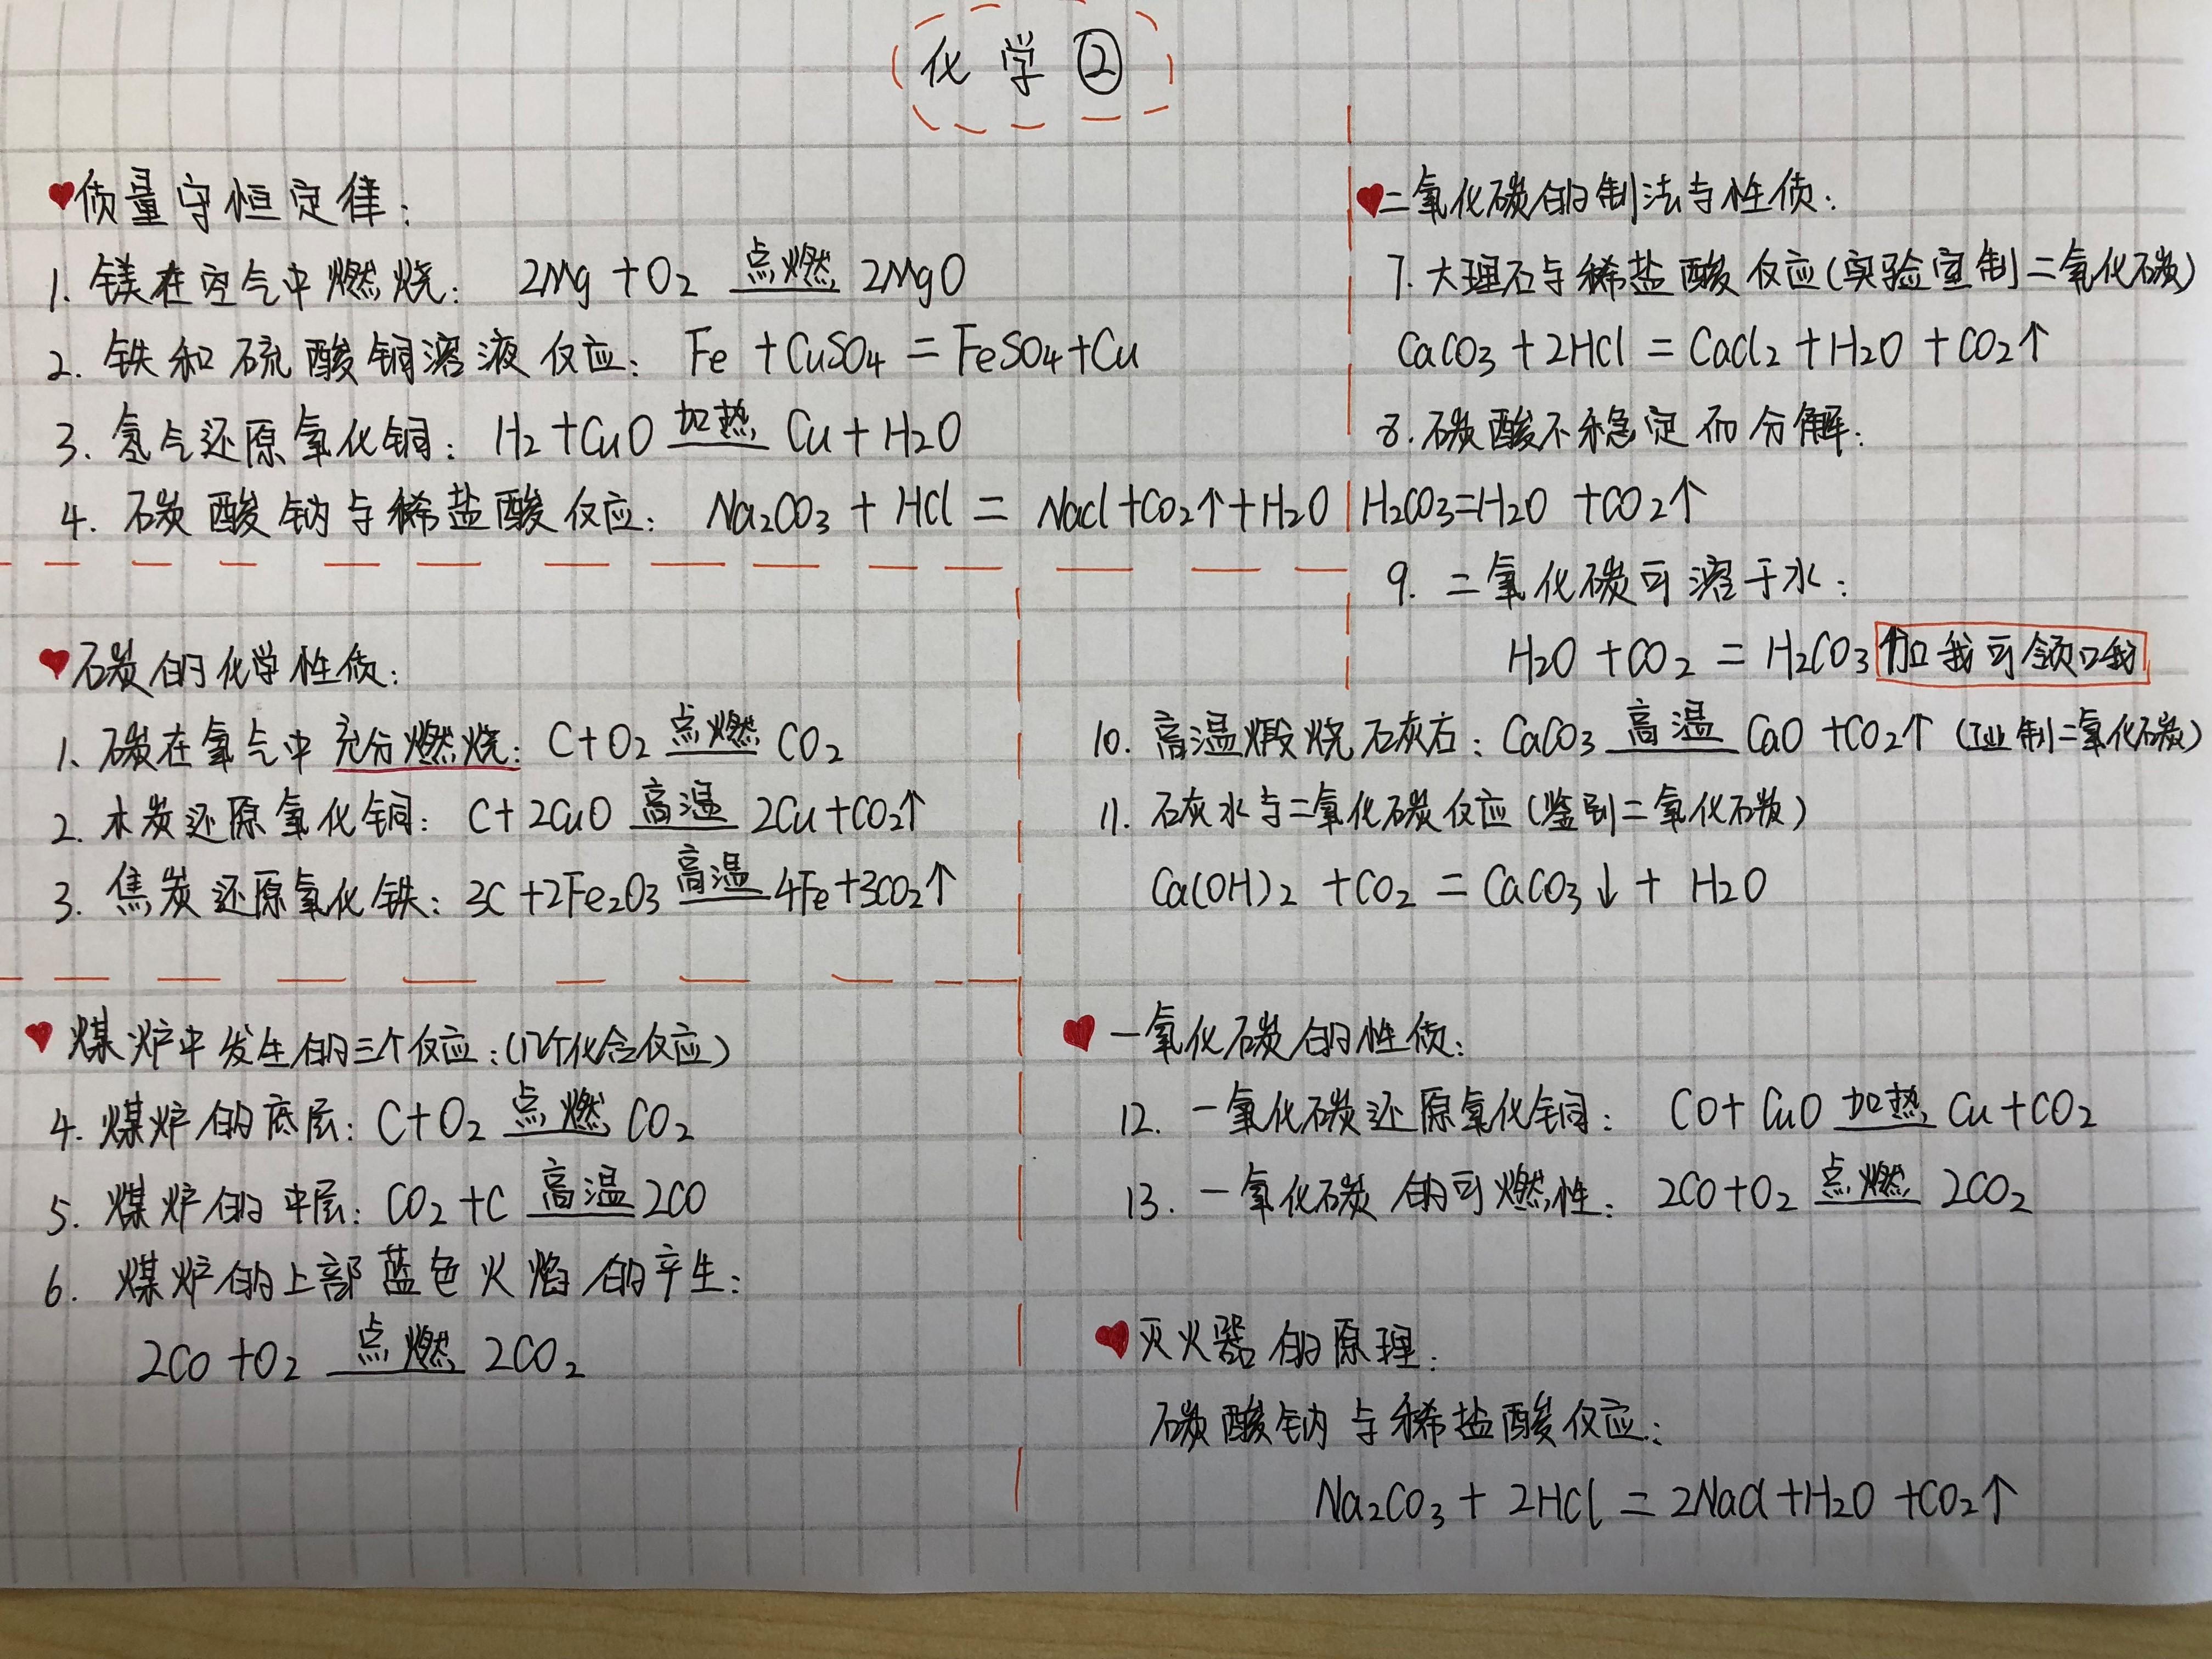 化学②
质量守恒定律：
1. 镁在空气中燃烧： 2Mg + O₂ 点燃 2MgO
2. 铁和硫酸铜溶液反应： Fe + CuSO₄ = FeSO₄ + Cu
3. 氢气还原氧化铜： H₂ + CuO 加热 Cu + H₂O
4. 碳酸钠与稀盐酸反应： Na₂CO₃ + HCl = NaCl + CO₂↑ + H₂O
碳的化学性质：
1. 碳在氧气中充分燃烧： C + O₂ 点燃 CO₂
2. 木炭还原氧化铜： C + 2CuO 高温 2Cu + CO₂↑
3. 焦炭还原氧化铁： 3C + 2Fe₂O₃ 高温 4Fe + 3CO₂↑
煤炉中发生的三个反应：(几个化合反应)
4. 煤炉的底层： C + O₂ 点燃 CO₂
5. 煤炉的中层： CO₂ + C 高温 2CO
6. 煤炉的上部蓝色火焰的产生：
2CO + O₂ 点燃 2CO₂
二氧化碳的制法与性质：
7. 大理石与稀盐酸反应(实验室制二氧化碳)
CaCO₃ + 2HCl = CaCl₂ + H₂O + CO₂↑
8. 碳酸不稳定而分解：
H₂CO₃ = H₂O + CO₂↑
9. 二氧化碳可溶于水：
H₂O + CO₂ = H₂CO₃ 加我可领口我
10. 高温煅烧石灰石： CaCO₃ 高温 CaO + CO₂↑ (工业制二氧化碳)
11. 石灰水与二氧化碳反应(鉴别二氧化碳)
Ca(OH)₂ + CO₂ = CaCO₃↓ + H₂O
一氧化碳的性质：
12. 一氧化碳还原氧化铜： CO + CuO 加热 Cu + CO₂
13. 一氧化碳的可燃性： 2CO + O₂ 点燃 2CO₂
灭火器的原理：
碳酸钠与稀盐酸反应：
Na₂CO₃ + 2HCl = 2NaCl + H₂O + CO₂↑